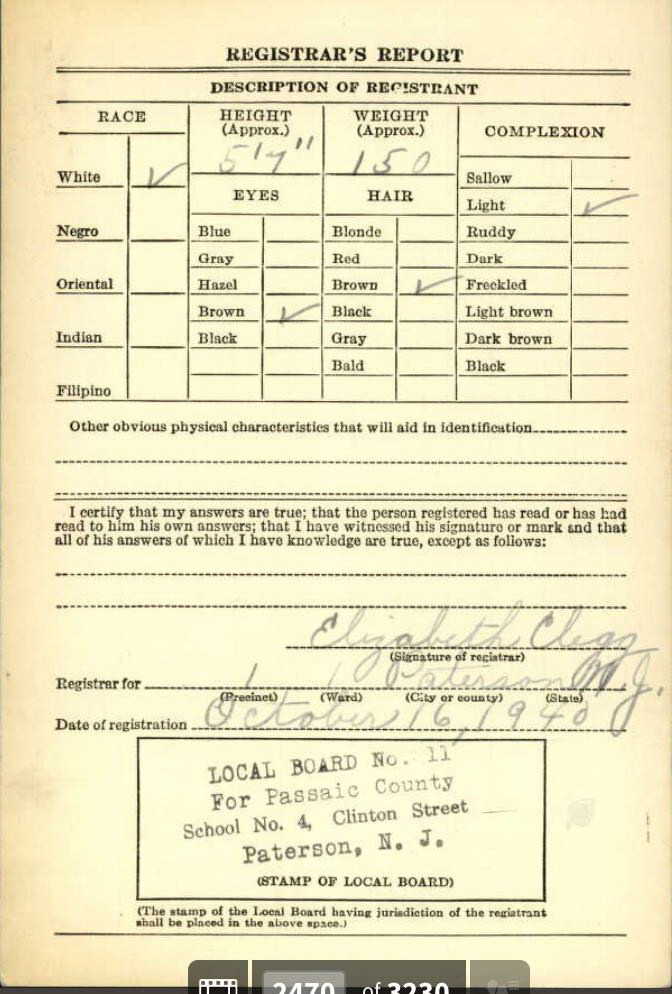 REGISTRAR'S REPORT
DESCRIPTION OF REGISTRANT
RACE
HEIGHT
(Approx.)
5'7"
WEIGHT
(Approx.)
150
COMPLEXION
White ✓
Negro
Oriental
Indian
Filipino
EYES
Blue
Gray
Hazel
Brown ✓
Black
HAIR
Blonde
Red
Brown ✓
Black
Gray
Bald
Sallow
Light ✓
Ruddy
Dark
Freckled
Light brown
Dark brown
Black
Other obvious physical characteristics that will aid in identification
I certify that my answers are true; that the person registered has read or has had
read to him his own answers; that I have witnessed his signature or mark and that
all of his answers of which I have knowledge are true, except as follows:
Elizabeth Clegg
(Signature of registrar)
Registrar for 1 1 Paterson N.J.
(Precinct) (Ward) (City or county) (State)
Date of registration October 16, 1940
LOCAL BOARD No. 11
For Passaic County
School No. 4, Clinton Street
Paterson, N. J.
(STAMP OF LOCAL BOARD)
(The stamp of the Local Board having jurisdiction of the registrant
shall be placed in the above space.)
2470 of 3230